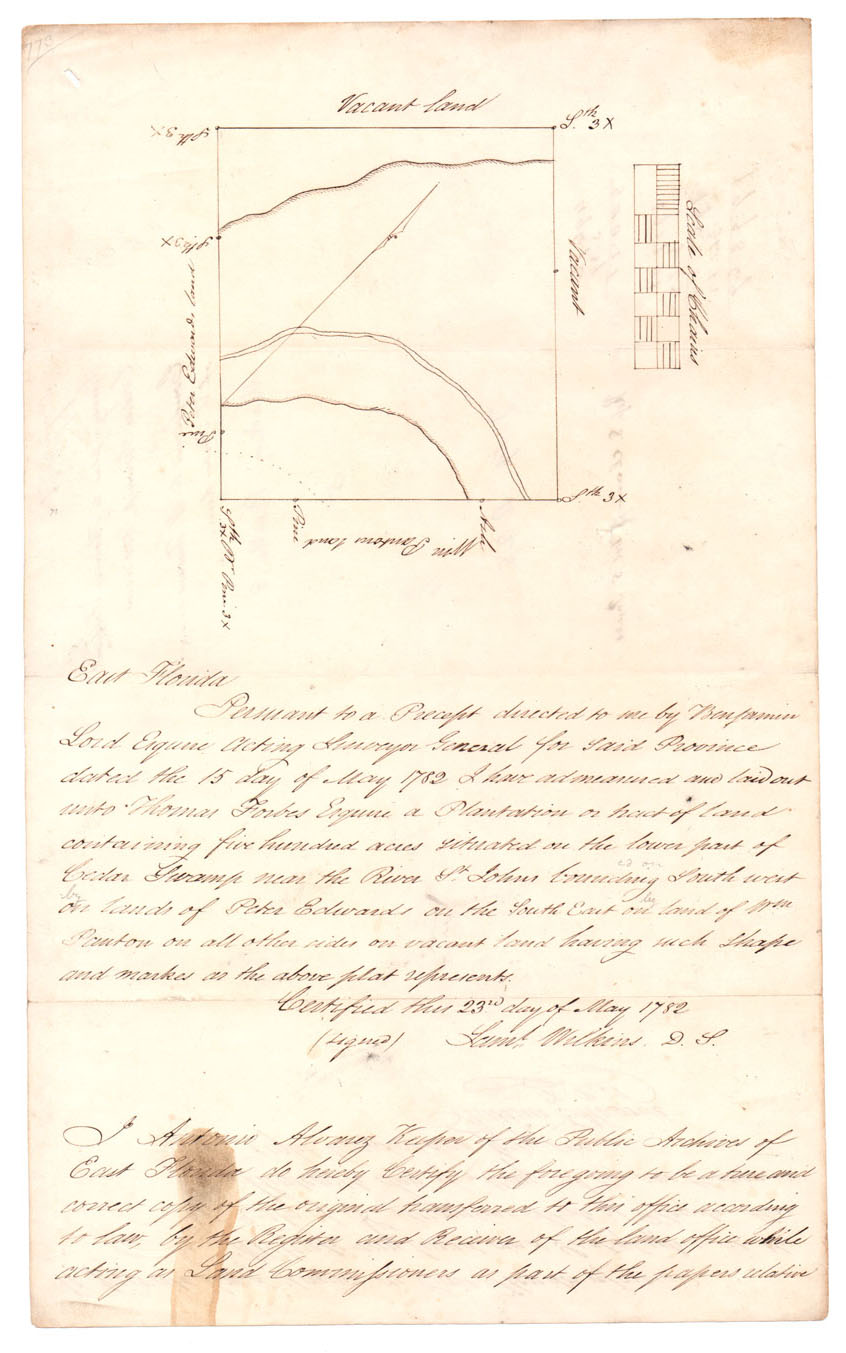 773
Vacant land
Sth 3X
Sth 3X
Sth 3X
Vacant
Scale of Chains
Peter Edwards land
Pine
Sth 3X
Sth
3X Pr Pine 3X
Pine
Wm Pantons land
Ash
East Florida
Persuant to a Precept directed to me by Benjamin
Lord Esquire Acting Surveyor General for said Province
dated the 15 day of May 1782 I have admeasured and laid out
unto Thomas Forbes Esquire a Plantation or tract of land
containing five hundred acres situated on the lower part of
ed on
Cedar Swamp near the River St. Johns bounding South west
by by
on lands of Peter Edwards on the South East on land of Wm
Panton on all other sides on vacant land having such shape
and markes as the above plat represents.
Certified this 23rd day of May 1782
(signed) Saml. Wilkins. D. S.
I Antonio Alvarez Keeper of the Public Archives of
East Florida do hereby Certify the foregoing to be a true and
correct copy of the original transferred to this office according
to law, by the Register and Receiver of the land office while
acting as Land Commissioners as part of the papers relative